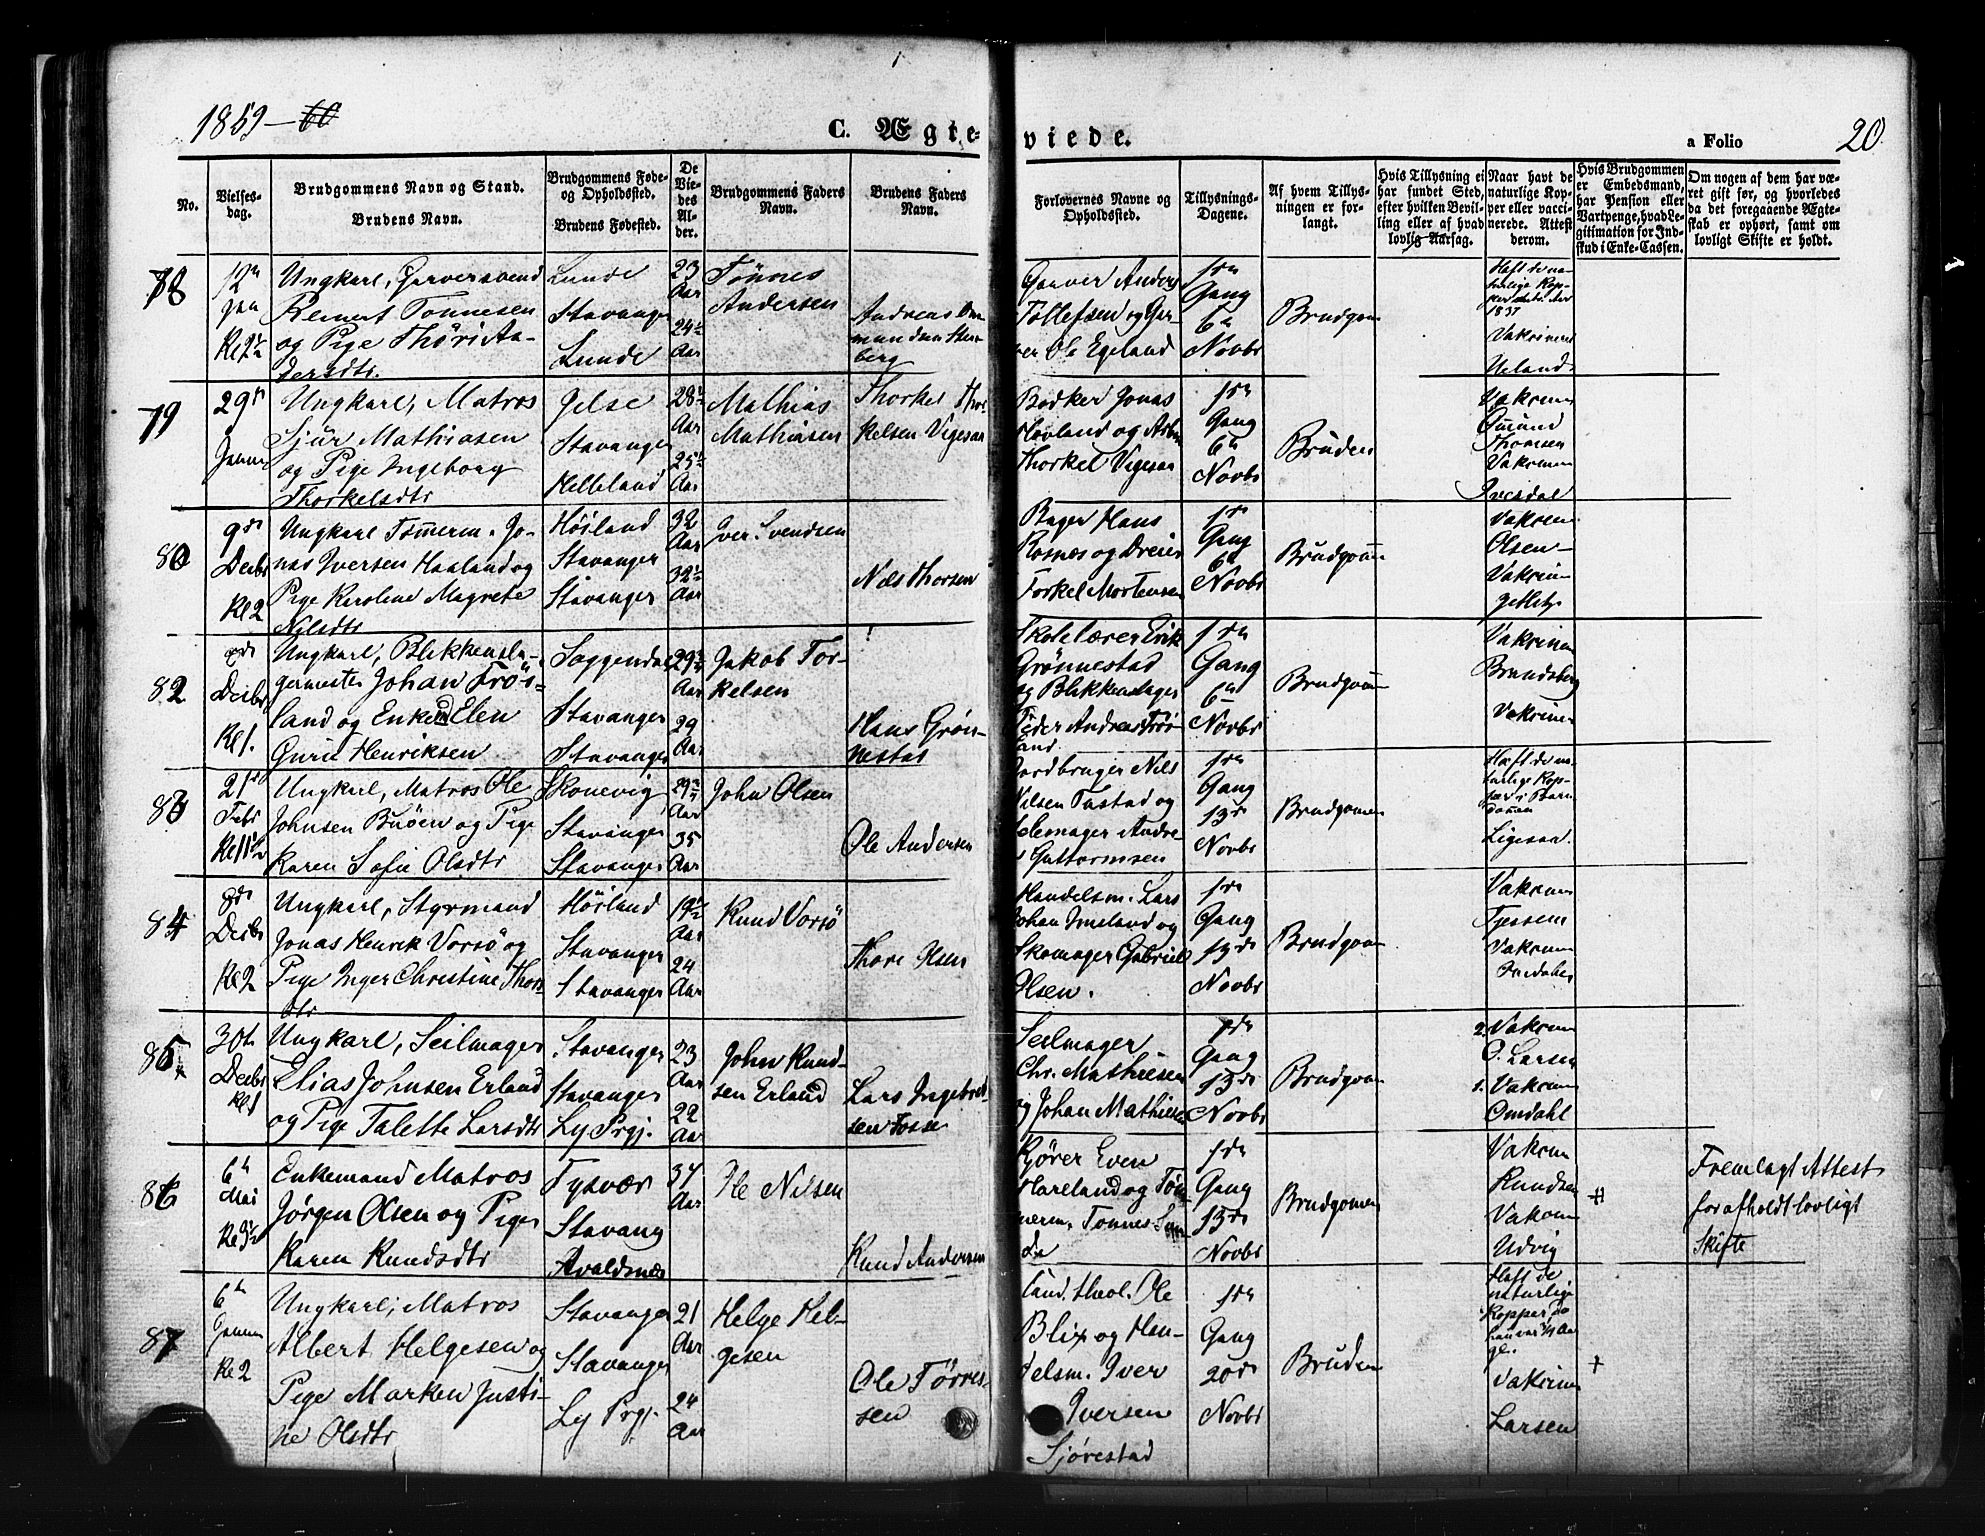 1859-60
C. Ægte-
viede.
a Folio
20.
No.
Vielses-
dag.
Brudgommens Navn og Stand.
Brudens Navn.
Brudgommens Føde-
og Opholdssted.
Brudens Fødested.
De
Vie-
des
Al-
der.
Brudgommens Faders
Navn.
Brudens Faders
Navn.
Forlovernes Navne og
Opholdssted.
Tillysnings-
Dagene.
Af hvem Tillys-
ningen er for-
langt.
Hvis Tillysning ei
har fundet Sted,
efter hvilken Bevil-
ling eller af hvad
lovlig Aarsag.
Naar havt de
naturlige Kop-
per eller vacci-
nerede. Attest
derom.
Hvis Brudgommen
er Embedsmand,
har Pension eller
Vartpenge, hvad Le-
gitimation for Ind-
skud i Enke-Cassen.
Om nogen af dem har væ-
ret gift før, og hvorledes
da det foregaaende Ægte-
skab er ophørt, samt om
lovligt Skifte er holdt.
78
12te
Jan
Kl 2½
Ungkarl, Garversvend
Reinert Tønnesen
og Pige Thøri An-
dersdtr.
Lunde
Stavanger
Lunde
23
Aar
24½
Aar
Tønnes
Andersen
Andreas
berg
Garver Anders
Tollefsen og Gar-
ver Ole Egeland
1ste
Gang
6te
Novbr
Brudgom
Haft de na-
turlige Kop-
1837
Ueland
79
29de
Ungkarl, Matros
Sjur Mathiasen
og Pige Ingeborg
Thorkelsdtr
Jelse
Stavanger
Helleland
28½
Aar
25½
Aar
Mathias
Mathiasen
Thorkel Thor-
kelsen Vigesaa
Bødker Jonas
Hovland og
Thorkel Vigesaa
1ste
Gang
6te
Novbr
Bruden
80
9de
Decbr
Kl 2
Ungkarl Tømmerm. Jo-
nas Iversen Haaland og
Pige Karoline Magrete
Nilsdtr
Høiland
Stavanger
Stavanger
32
Aar
32½
Aar
Iver Svendsen
Nils Thorsen
Bager Hans
Rosnæs og Dreier
Torkel Mortensen
1ste
Gang
6te
Novbr
Brudgom
Olsen
82
Decbr
Kl 1.
Ungkarl, Blikkensla-
germester Johan Frø-
land og Enke Elen
Gurie Henriksen
Soggendal
Stavanger
Stavanger
29¾
Aar
29
Aar
Jakob Tor-
kelsen
Hans Grøn-
nestad
Skolelærer Erik
Grønnestad
og Blikkenslager
Peder Andreas Frø-
land
1ste
Gang
6te
Novbr
Brudgom
Brandsberg
83
21de
Febr
Ungkarl, Matros Ole
Johnsen Buøen og Pige
Karen Sofie Olsdtr
Skonevig
Stavanger
Stavanger
Aar
35
Aar
John Olsen
Ole Andersen
Jordbruger Nils
Nilsen Tastad og
Guttormsen
1ste
Gang
13de
Novbr
Brudgomen
Haft de na-
turlige Kop-
84
8de
Decbr
Kl 2
Ungkarl, Styrmand
Jonas Henrik Vorsø og
Pige Inger Christine Thors-
dtr
Høiland
Stavanger
Stavanger
19½
Aar
24
Aar
Knud Vorsø
Thore Olsen
Handelsm. Lars
Johan Imeland og
Skomager Gabriel
Olsen.
1ste
Gang
13de
Novbr
Brudgom
85
30te
Decbr
Kl 1
Ungkarl, Seilmager
Elias Johnsen Erland
og Pige Talette Larsdtr
Stavanger
Stavanger
Ly Prgj.
23
Aar
22
Aar
John Knud-
sen Erland
Lars Ingebret-
sen Fosse
Seilmager
Chr. Mathiesen
og Johan Mathiesen
1ste
Gang
13de
Novbr
Brudgom
2. Vaksin
O. Larsen
1. Vaksin
Omdahl
86
6te
Mai
Kl 3½
Enkemand Matros
Jørgen Olsen og Pige
Karen Knudsdtr
Tysvær
Stavang
Avaldsnæs
34
Aar
Ole Nilsen
Knud Andersen
Kjører Even
Hareland og Tøm-
merm. Tønnes Sun-
de
1ste
Gang
13de
Novbr
Brudgomen
Vaksin
Knudsen
Vaksin
Udvig
Fremlagt Attest
for afholdt lovligt
Skifte
87
6te
Kl 2
Ungkarl, Matros
Albert Helgesen og
Pige Marken Justi-
ne Olsdtr
Stavanger
Stavanger
Ly Prgj.
21
Aar
24
Aar
Helge Hel-
gesen
Ole Tørres-
sen
Cand. theol. Ole
Blix og Han-
delsm. Iver
Iversen
Sjørestad
1ste
Gang
20de
Novbr
Bruden
Haft de
naturlige
Kopper
Larsen